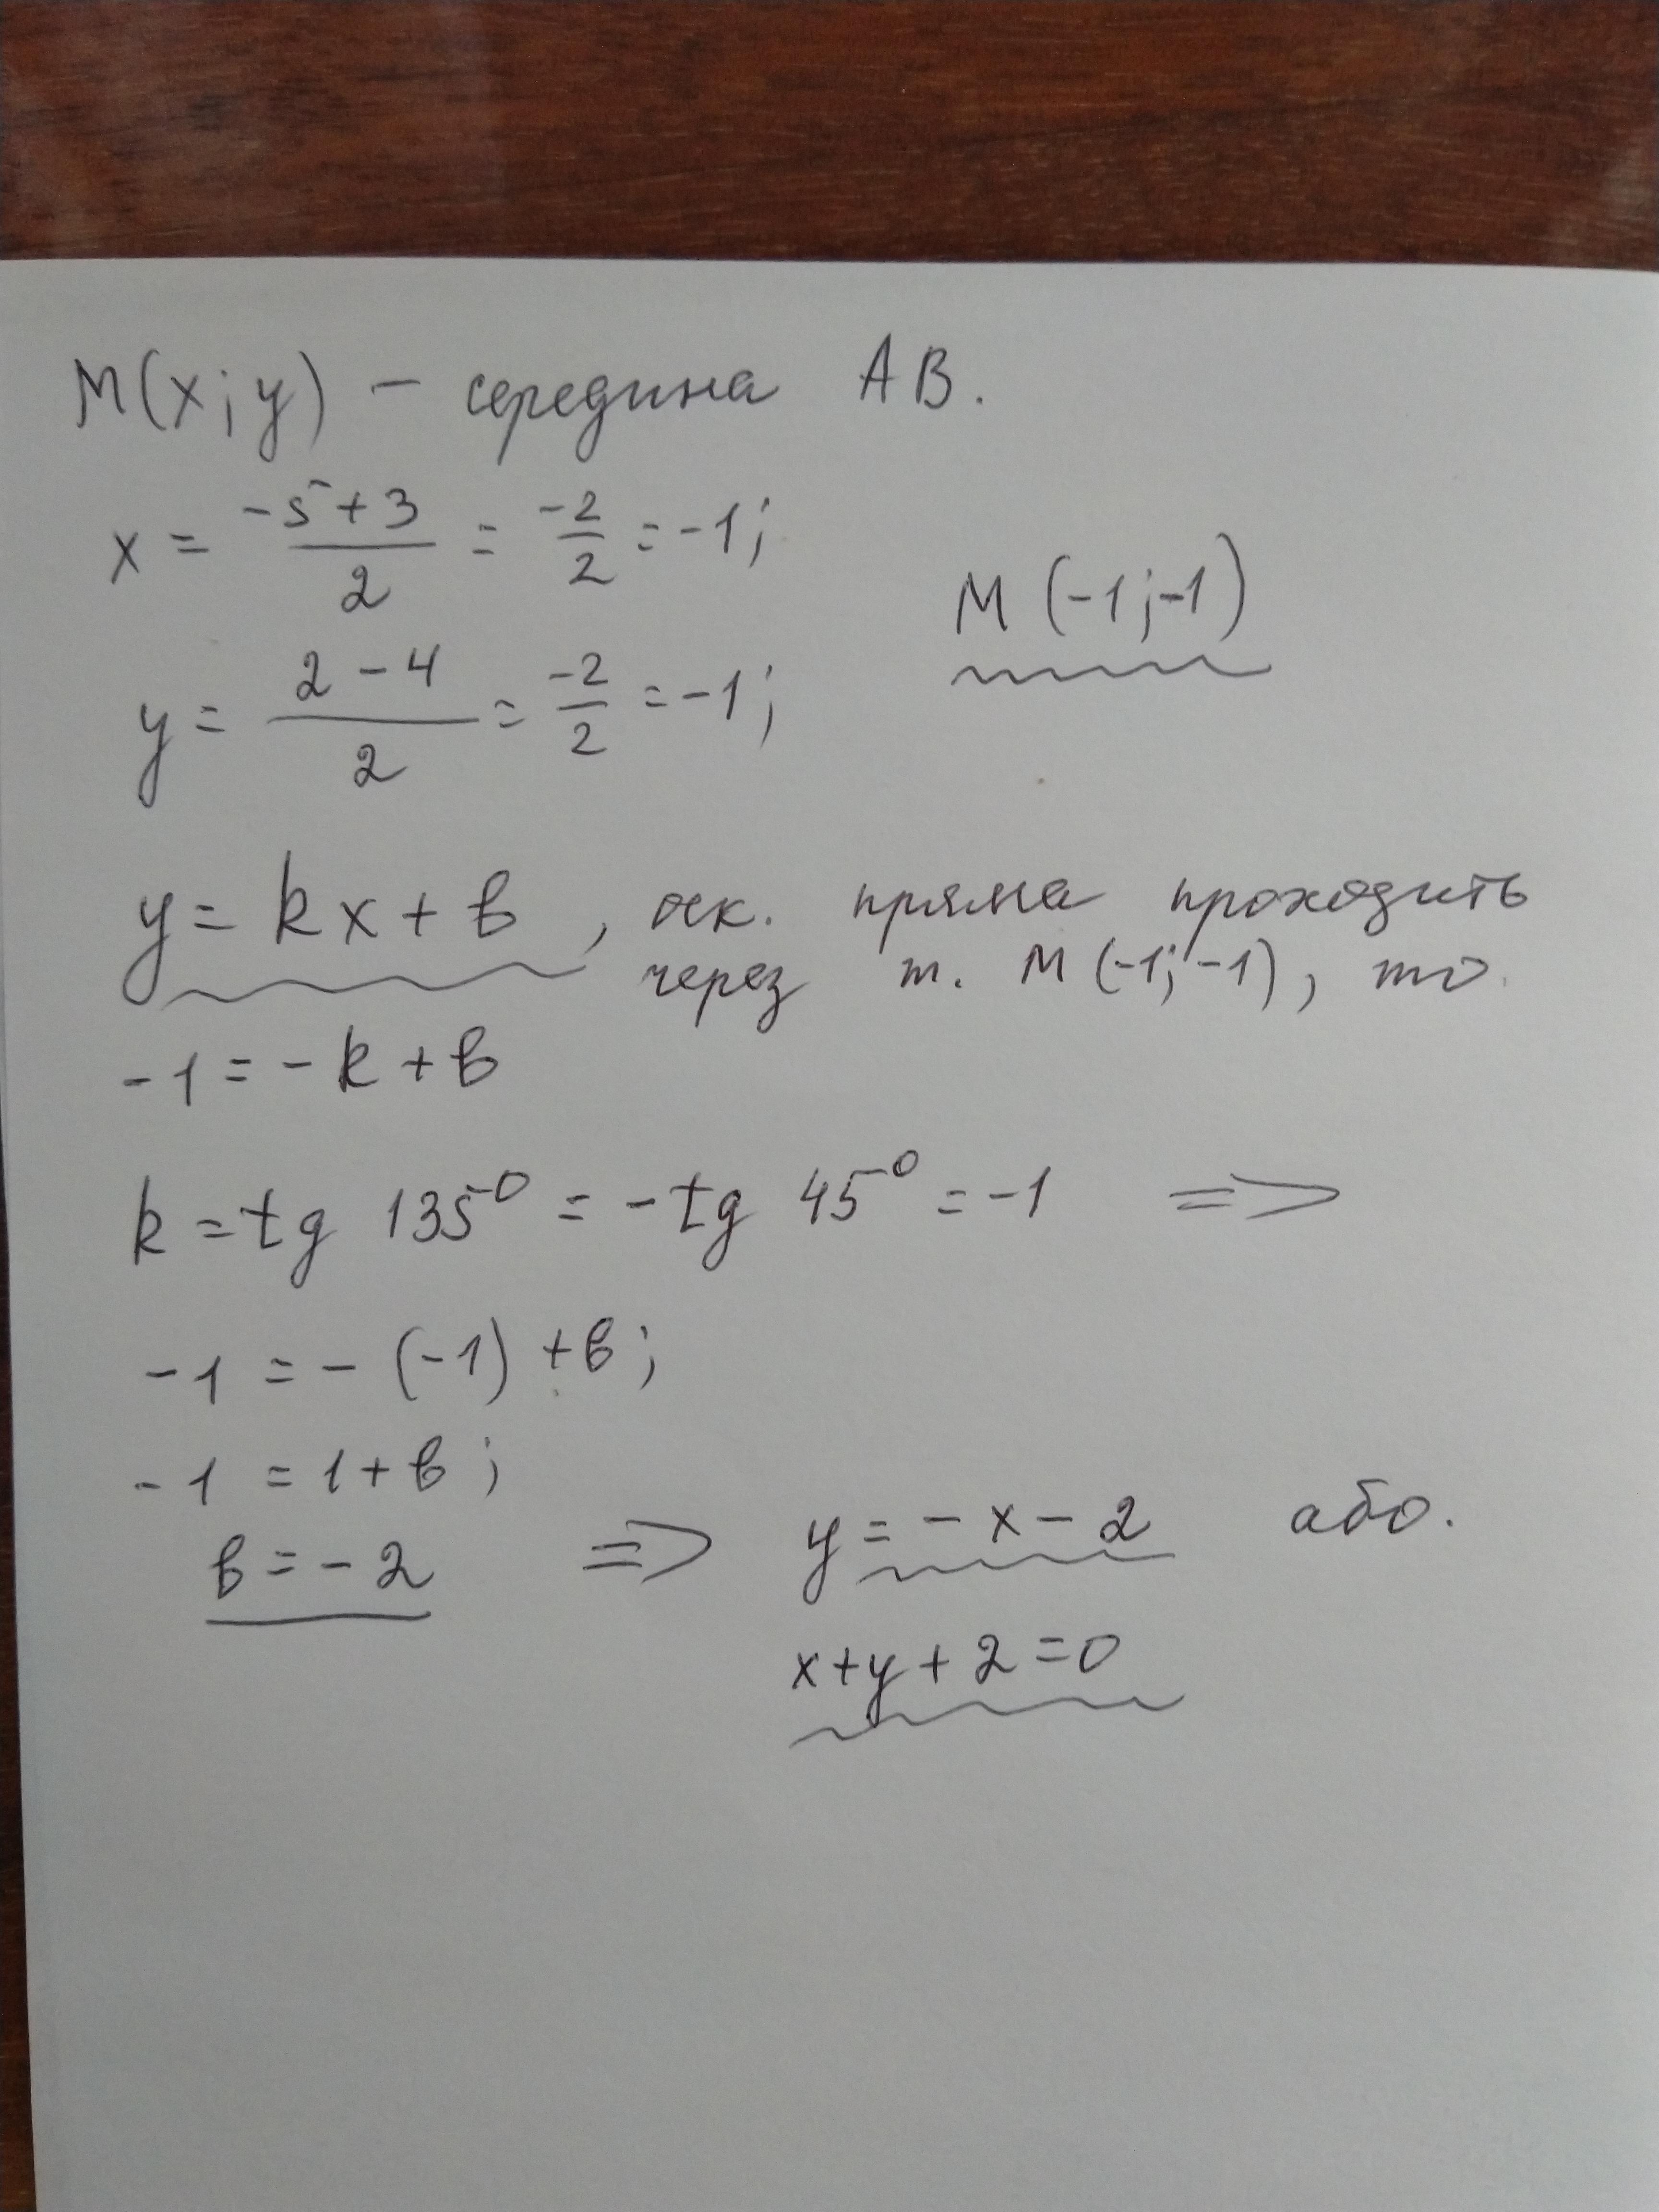 M(x;y) – середина AB.
x = \frac{-5+3}{2} = \frac{-2}{2} = -1;
M(-1;-1)
y = \frac{2-4}{2} = \frac{-2}{2} = -1;
y = kx + b, оск. пряма проходить
через т. M(-1;-1), то
-1 = -k + b
k = tg 135° = -tg 45° = -1 =>
-1 = -(-1) + b;
-1 = 1 + b;
b = -2 => y = -x - 2 або.
x + y + 2 = 0